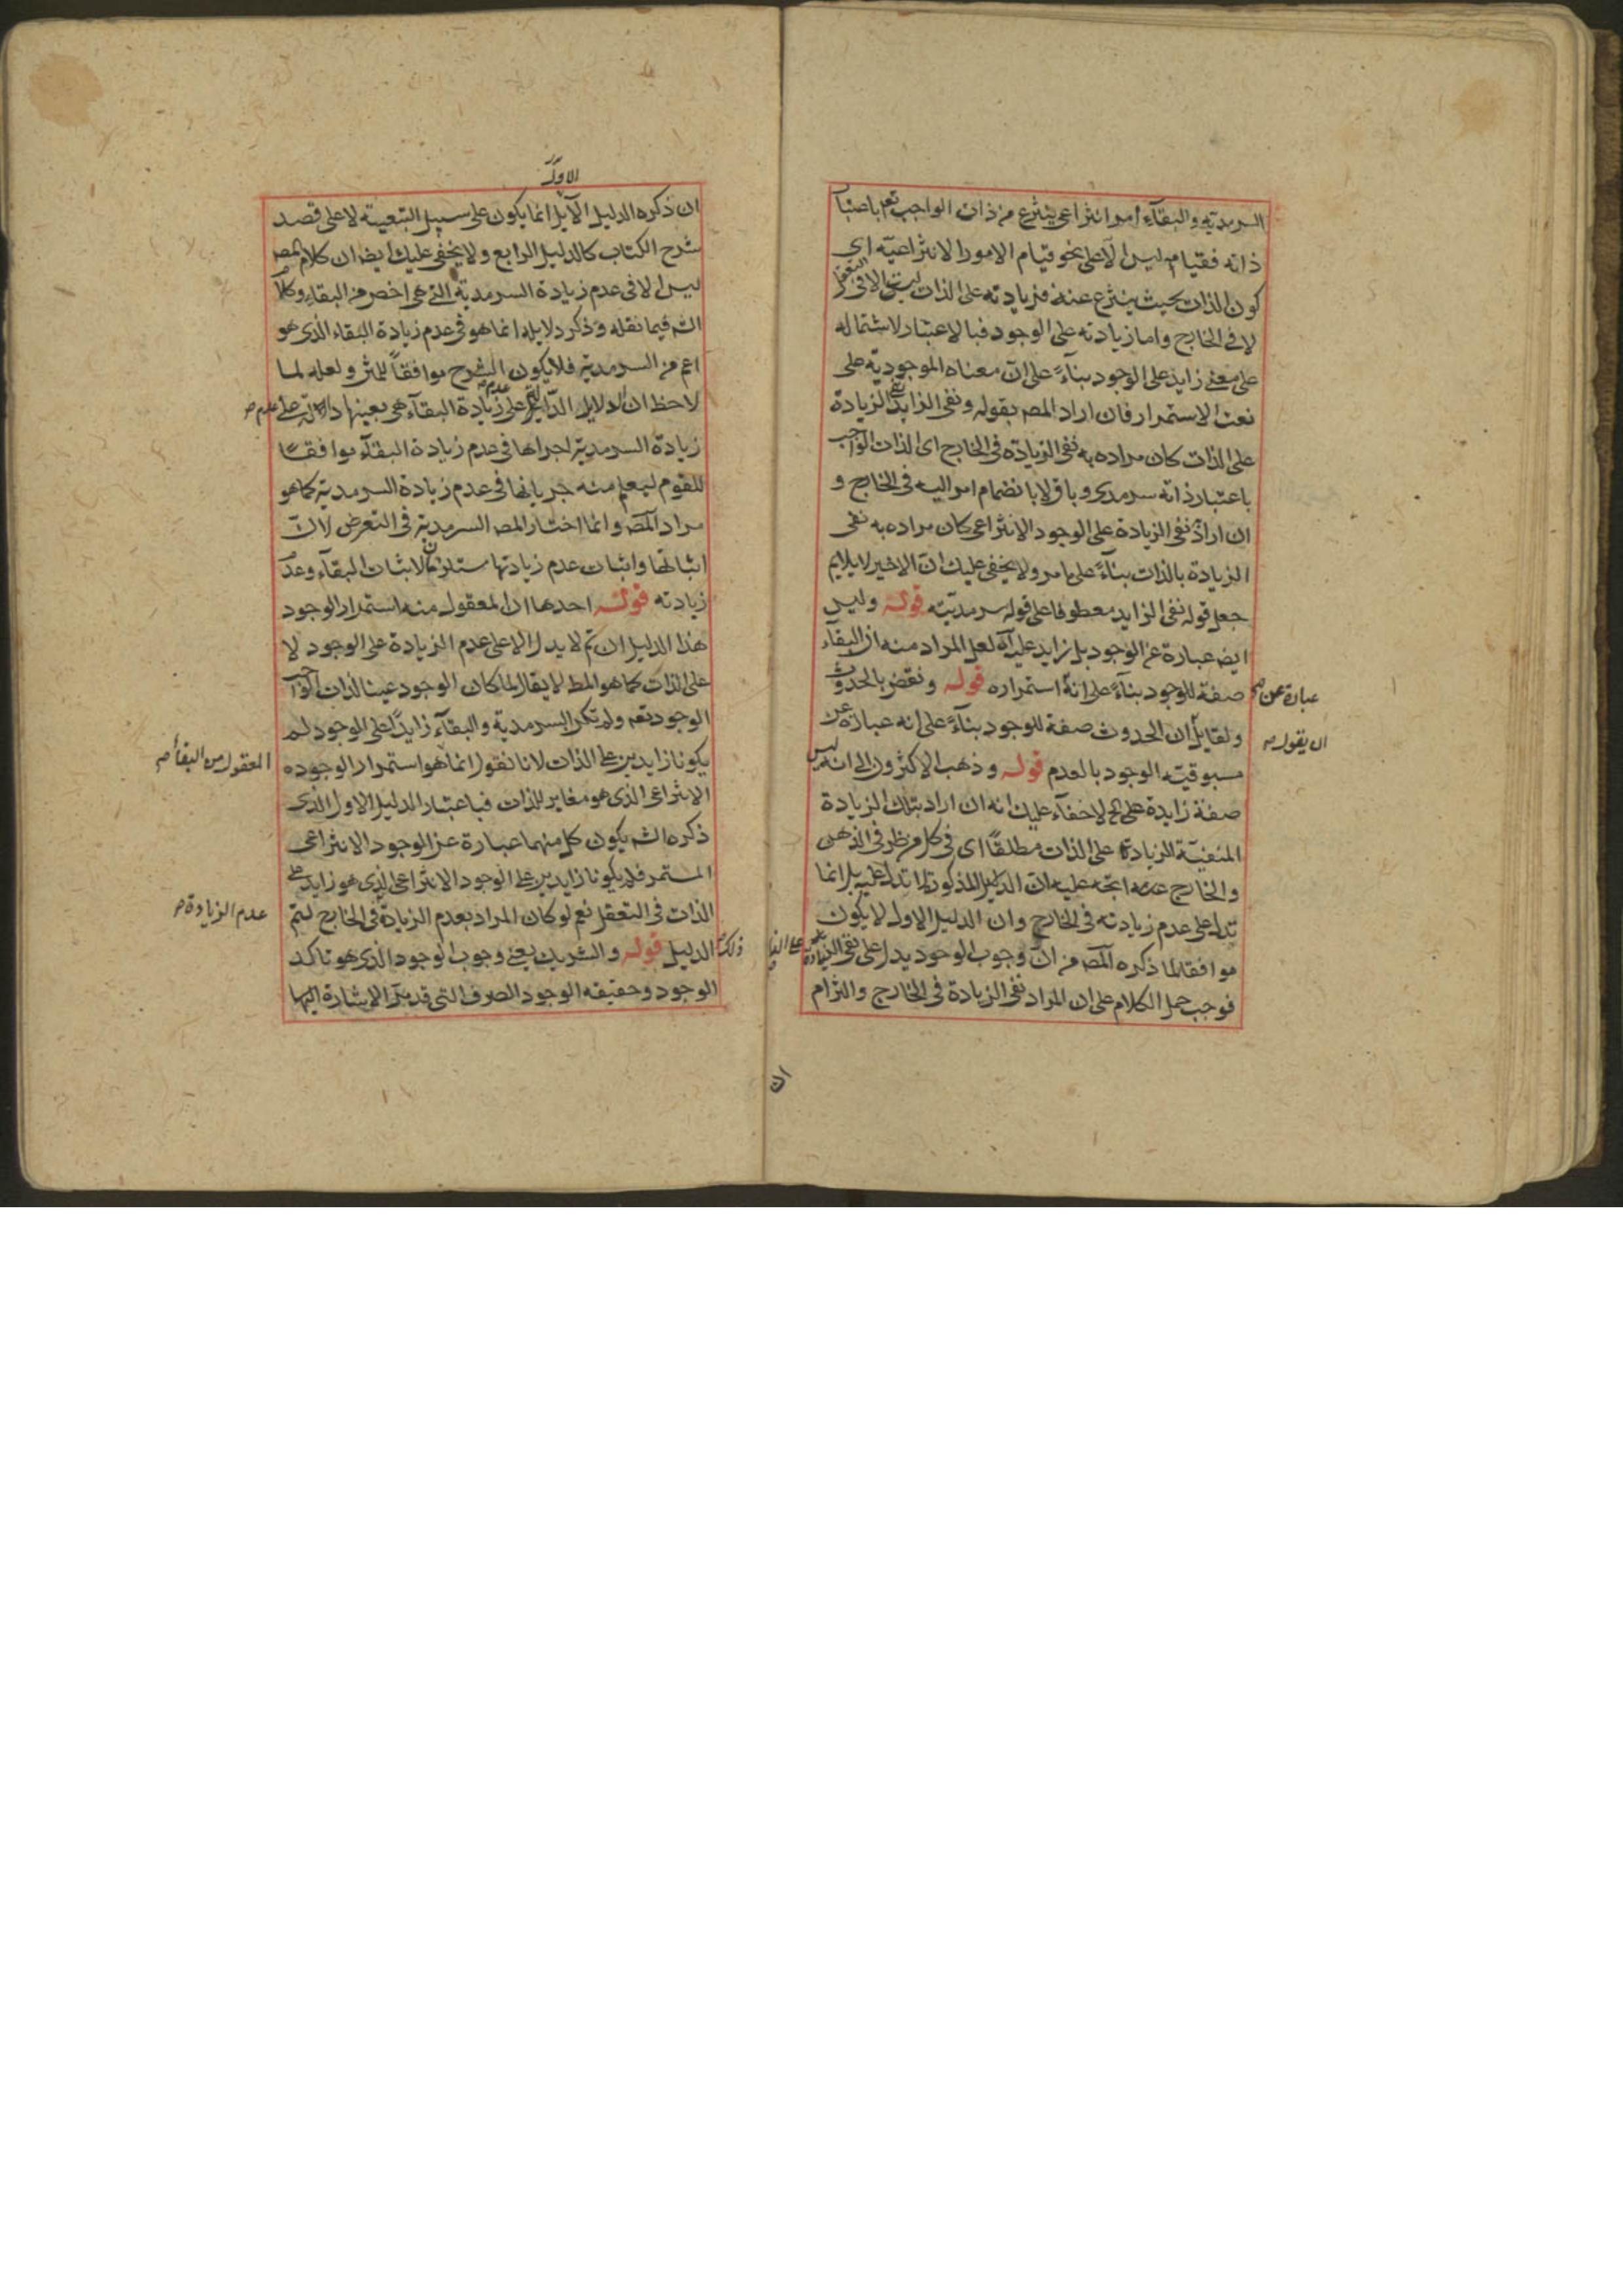 السرمدية والبقآء امر انتزاعى ينتزع من ذات الواجب تعم باعتبار
ذاته فقيامه ليس الا على نحو قيام الامور الانتزاعية اى
كون الذات بحيث ينتزع عنه فزيادته على الذات ليست الا فى التعقل
لا فى الخارج واما زيادته على الوجود فبالاعتبار لاشتماله
على معنى زايد على الوجود بنآءً على ان معناه الموجودية على
نعت الاستمرار فان اراد المصر بقوله ونفى الزايد نفى الزيادة
على الذات كان مراده به نفى الزيادة فى الخارج اى الذات الواجب
باعتبار ذاته سرمدى وباق لا بانضمام امر اليه فى الخارج و
ان اراد نفى الزيادة على الوجود الانتزاعى كان مراده به نفى
الزيادة بالذات بنآءً على ما مر ولا يخفى عليك ان الاخير لا يلايم
جعل قوله نفى الزايد معطوفا على قوله سرمديته قوله وليس
ايض عبارة عن الوجود بل زايد عليه لعل المراد منه ان البقآء
صفة للوجود بنآءً على انه استمراره قوله ونقض بالحدوث
عبارة عن صح
ولقايل ان الحدوث صفة للوجود بنآءً على انه عبارة عن
ان يقول صح
مسبوقية الوجود بالعدم قوله وذهب الاكثرون الى انه ليس
صفة زايدة على الخ لا خفآء عليك انه ان اراد بتلك الزيادة
المنفية الزيادة على الذات مطلقًا اى فى كل من ظرفى الذهن
والخارج اتجه عليه ان الدلايل المذكورة لا تدل عليه بل انما
تدل على عدم زيادته فى الخارج وان الدليل الاول لا يكون
موافقا لما ذكره المصر من ان وجوب الوجود يدل على نفى الزيادة
فوجب حمل الكلام على ان المراد نفى الزيادة فى الخارج والتزام
ان
الاول
ان ذكره الدليل الاول انما يكون على سبيل التبعية لا على قصد
شرح الكتاب كالدليل الرابع ولا يخفى عليك ايض ان كلام المصر
ليس الا فى عدم زيادة السرمدية التى هى اخص من البقاء وكلام
الشه فيما نقله وذكر دلايله انما هو فى عدم زيادة البقاء الذى هو
اعم من السرمدية فلا يكون الشرح موافقاً للمتن ولعله لما
لاحظ ان الدلايل الدالة على عدم زيادة البقآء هى بعينها دالة على عدم صح
زيادة السرمدية اجراها فى عدم زيادة البقآء موافقًا
للقوم ليعلم منه جريانها فى عدم زيادة السرمدية كما هو
مراد المصر وانما اختار المصر السرمدية فى التعرض لان
اثباتها واثبات عدم زيادتها مستلزمان لاثبات البقآء وعدم
زيادته قوله احدها ان المعقول منه استمرار الوجود
هذا الدليل ان تم لا يدل الا على عدم الزيادة على الوجود لا
على الذات كما هو المط لا يقال لما كان الوجود عين الذات الواجب
الوجود تعم ولم تكن السرمدية والبقآء زايدًا على الوجود لم
يكونا زايدين على الذات لانا نقول انما هو استمرار الوجود
المعقول من البقآء صح
الانتزاعى الذى هو مغاير للذات فباعتبار الدليل الاول الذى
ذكره الشه يكون كل منهما عبارة عن الوجود الانتزاعى
المستمر فلا يكونا زايدين على الوجود الانتزاعى الذى هو زايد على
الذات فى التعقل نعم لو كان المراد بعدم الزيادة فى الخارج ليتم
عدم الزيادة صح
ذلك الدليل قوله والشريك يعنى وجوب الوجود الذى هو تاكد
الوجود وحقيقه الوجود الصرف التى قد مر الاشارة اليها